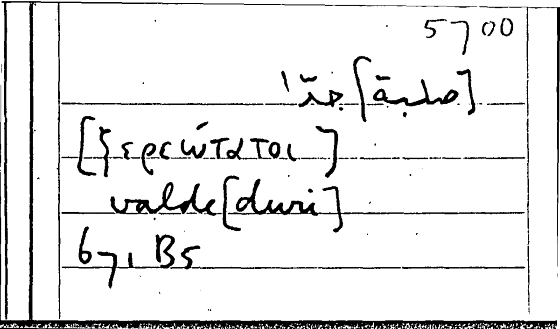 5700
[صلبة] جدّا
[ϛερεώτατοι]
valde [duri]
671 B5